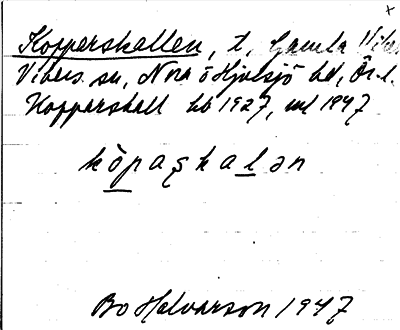 Kopperskallen, t, Gamla Vike
Vikers sn, Nora o Hjulsjö hd, Ör. l.
Kopperskall hb 1927, ml 1947
kòpaʂkalən
Bo Halvarson 1947